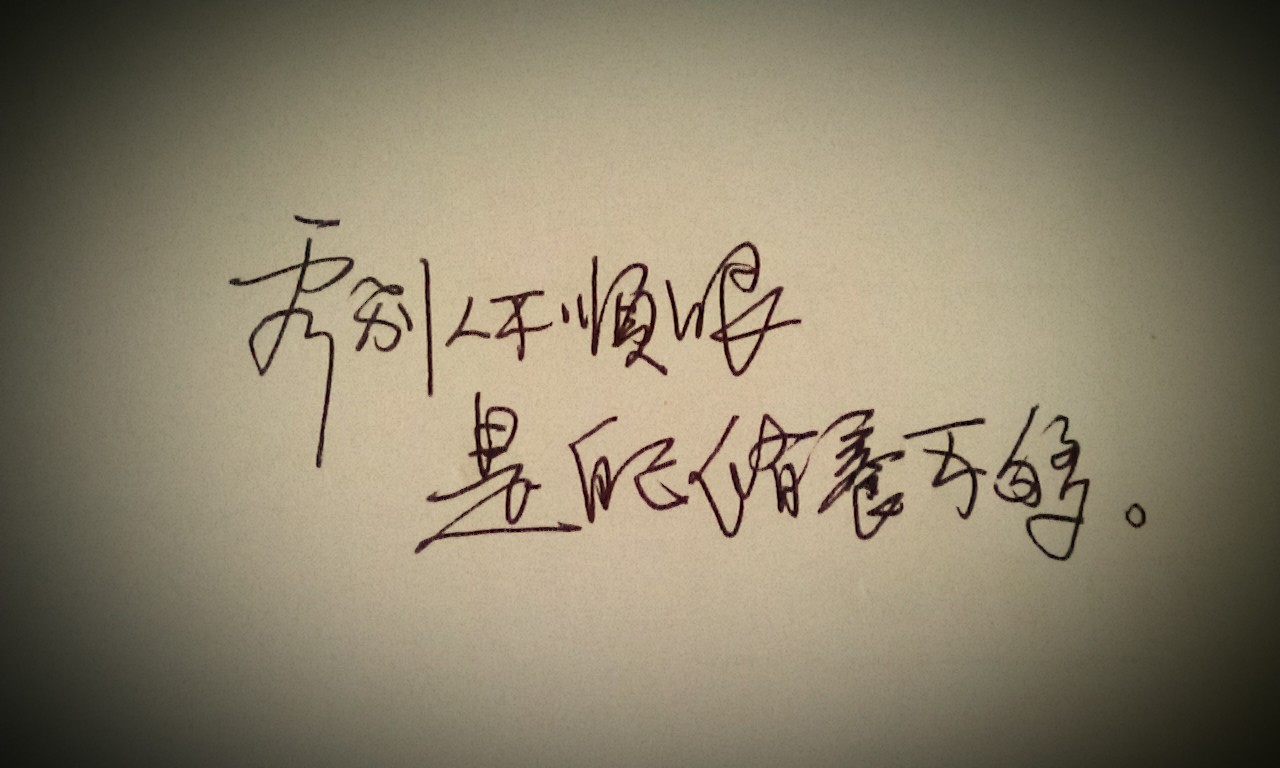 看别人不顺眼
是自己修养不够。